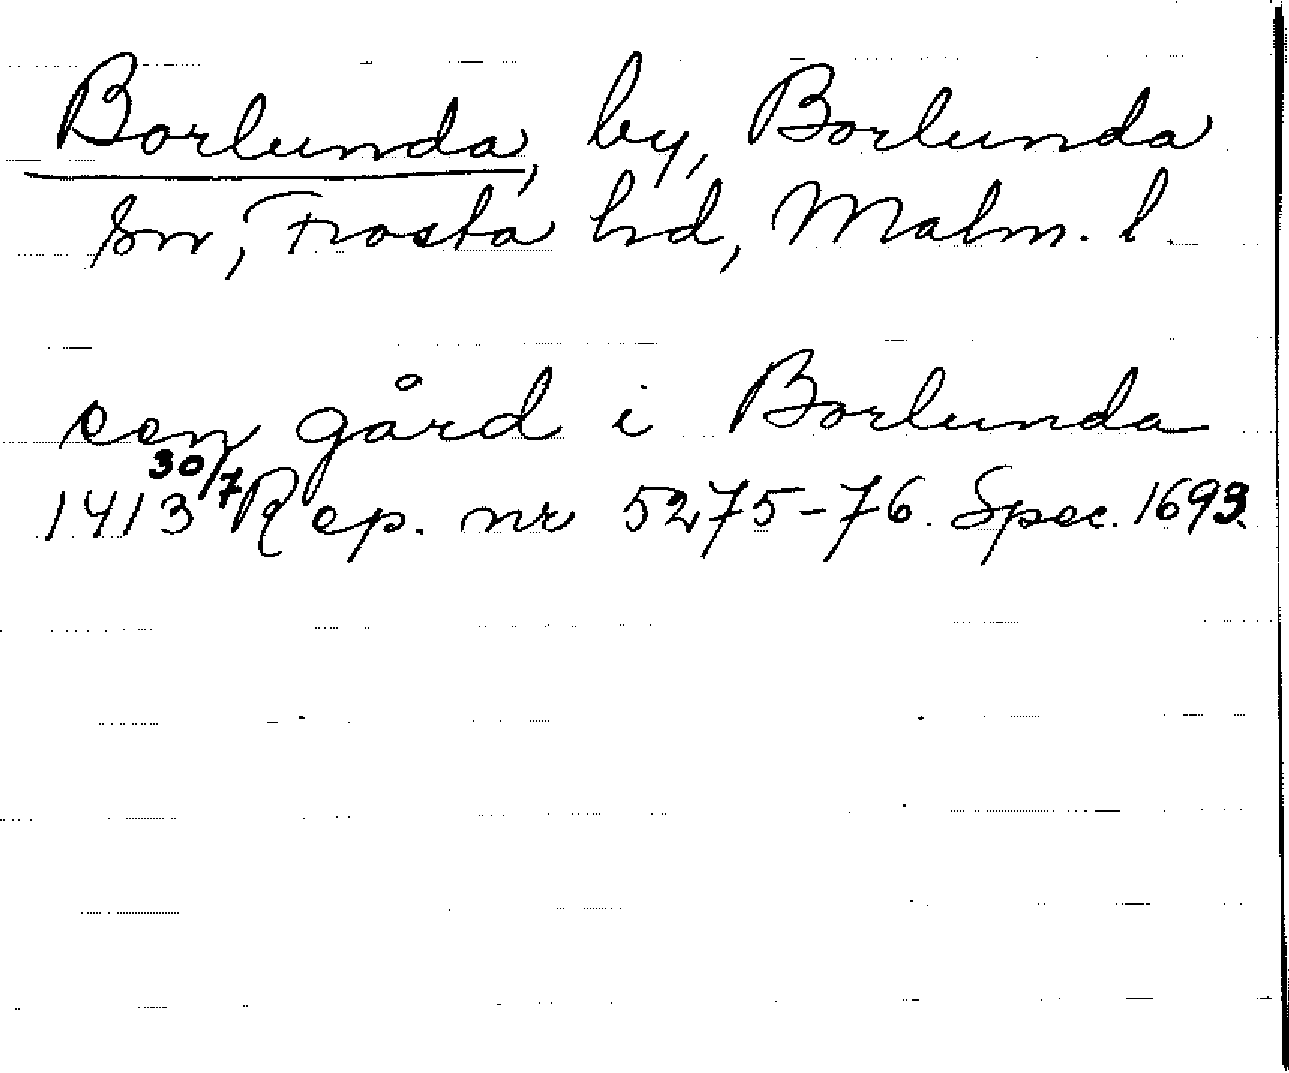 Borlunda, by, Borlunda
sn, Frosta hd, Malm. l.
een gård i Borlunda
1413 30/7 Rep. nr 5275-76. Spec. 1693.